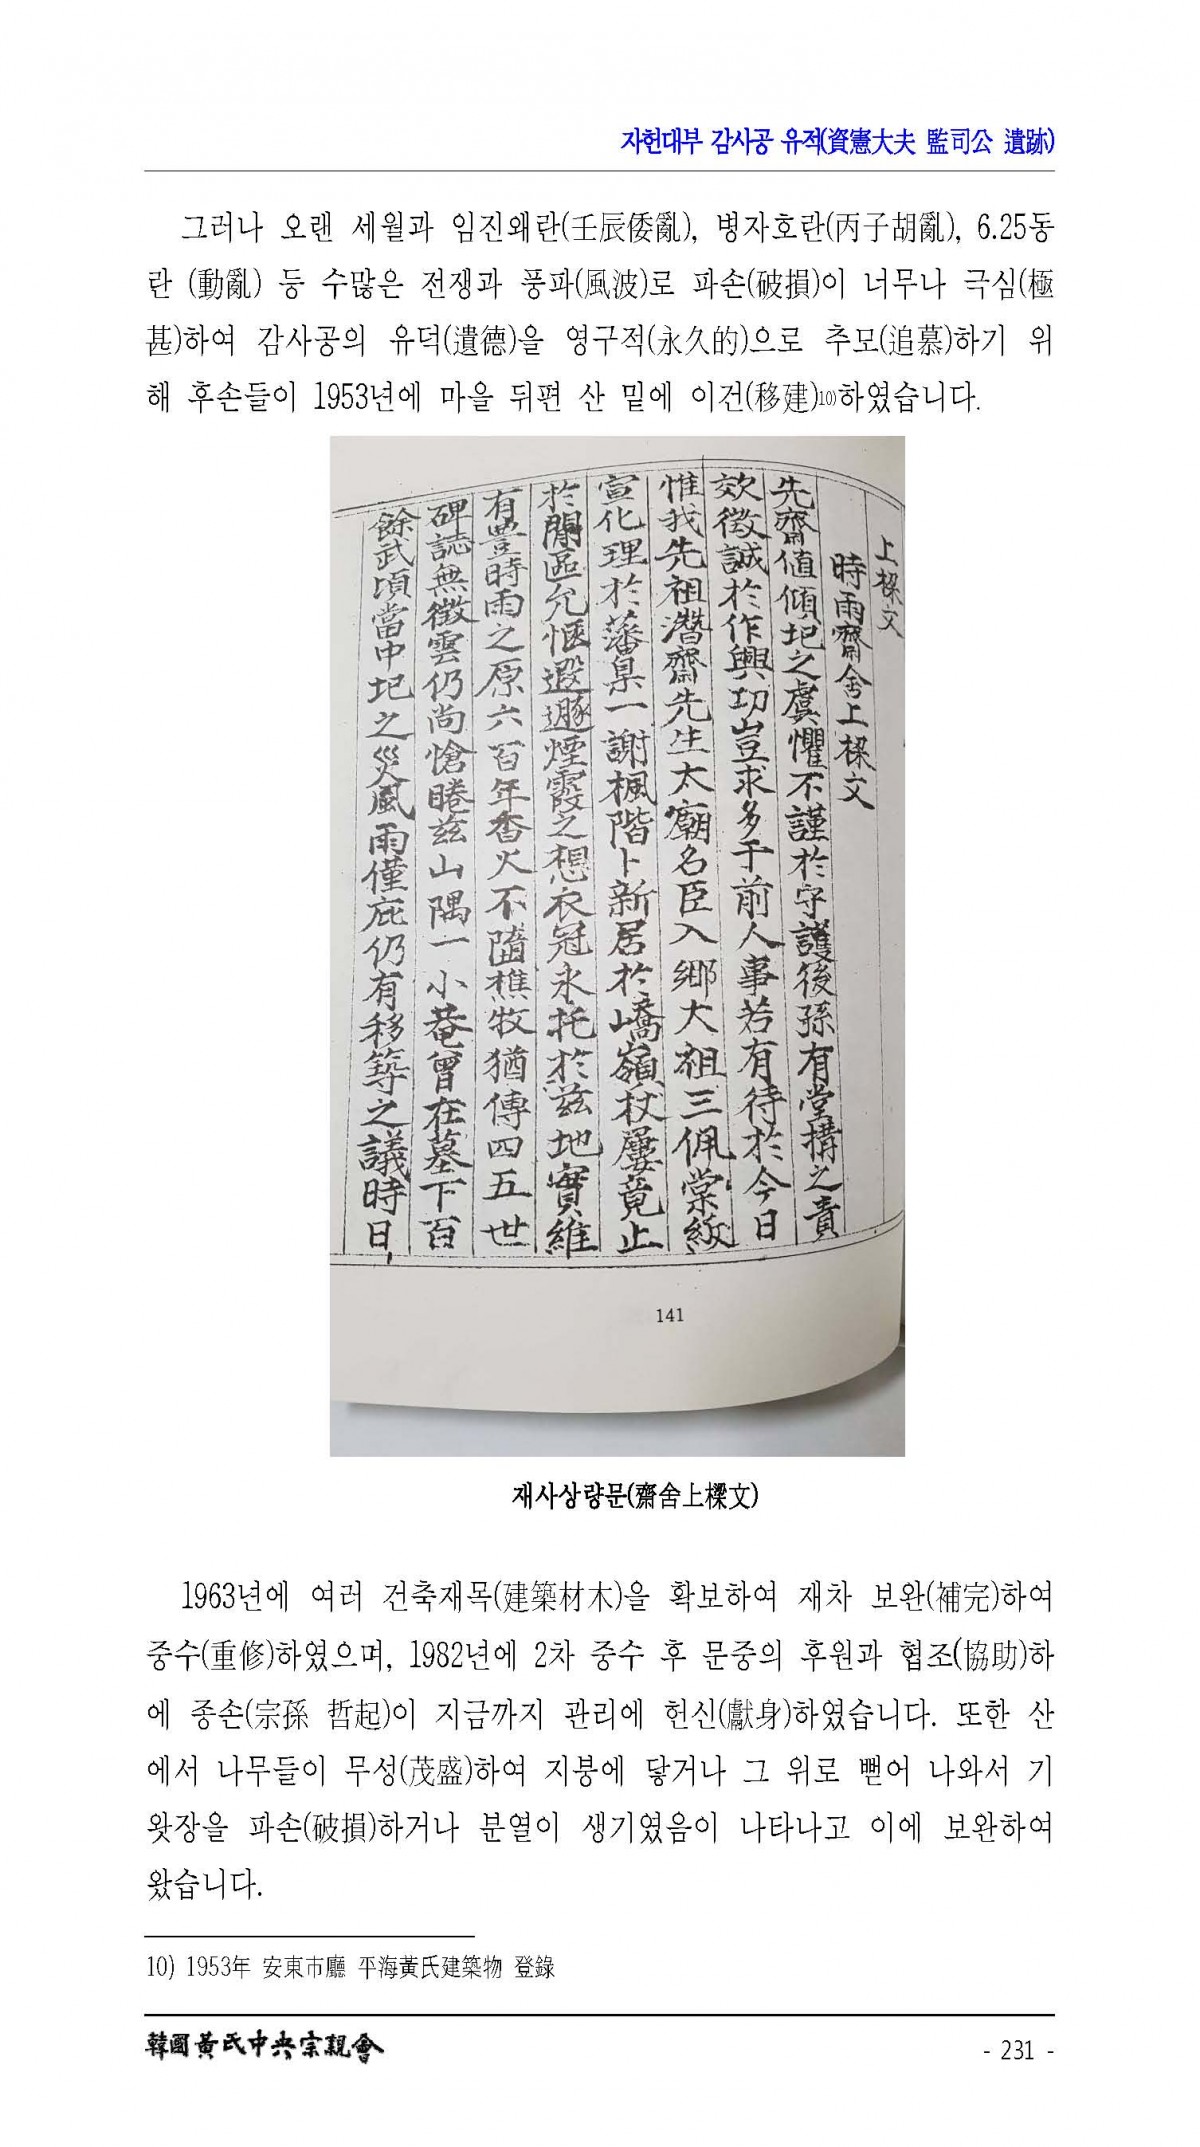 자헌대부 감사공 유적(資憲大夫 監司公 遺跡)
그러나 오랜 세월과 임진왜란(壬辰倭亂), 병자호란(丙子胡亂), 6.25동
란 (動亂) 등 수많은 전쟁과 풍파(風波)로 파손(破損)이 너무나 극심(極
甚)하여 감사공의 유덕(遺德)을 영구적(永久的)으로 추모(追慕)하기 위
해 후손들이 1953년에 마을 뒤편 산 밑에 이건(移建)10)하였습니다.
上樑文
時雨齋舍上樑文
先齋値傾圮之虞懼不謹於守護後孫有堂構之責
效徵誠於作興功豈求多于前人事若有待於今日
惟我先祖潛齋先生太廟名臣入鄕大祖三佩棠紱
宣化理於藩臬一謝楓階卜新居於嶠嶺杖屨竟止
於閒區允愜遐遯煙霞之想衣冠永托於玆地實維
有豊時雨之原六百年香火不隨樵牧猶傳四五世
碑誌無徵雲仍尚愴睠玆山隅一小菴曾在墓下百
餘武頃當中圮之災風雨僅庇仍有移築之議時日
141
재사상량문(齋舍上樑文)
1963년에 여러 건축재목(建築材木)을 확보하여 재차 보완(補完)하여
중수(重修)하였으며, 1982년에 2차 중수 후 문중의 후원과 협조(協助)하
에 종손(宗孫 哲起)이 지금까지 관리에 헌신(獻身)하였습니다. 또한 산
에서 나무들이 무성(茂盛)하여 지붕에 닿거나 그 위로 뻗어 나와서 기
왓장을 파손(破損)하거나 분열이 생기였음이 나타나고 이에 보완하여
왔습니다.
10) 1953年 安東市廳 平海黃氏建築物 登錄
韓國黃氏中央宗親會
- 231 -